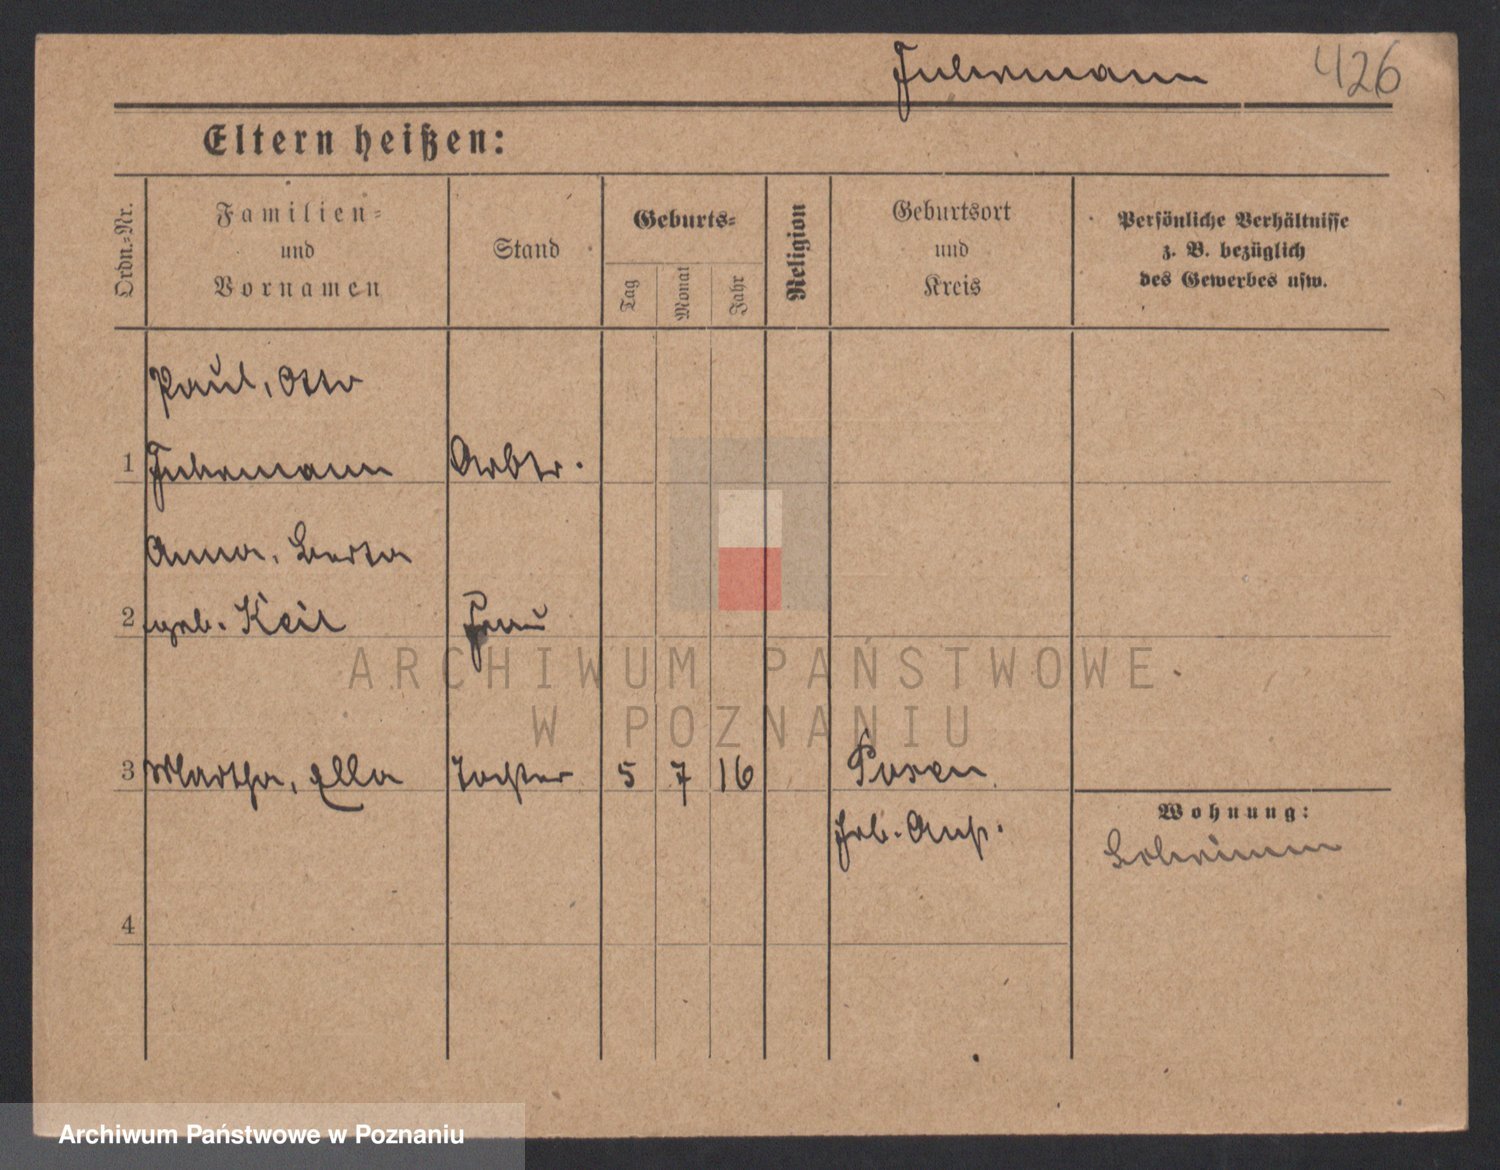 Fuhrmann 426
Eltern heißen:
Ordn.-Nr.
Familien-
und
Vornamen
Stand
Geburts-
Tag
Monat
Jahr
Religion
Geburtsort
und
Kreis
Persönliche Verhältnisse
z. B. bezüglich
des Gewerbes usw.
Paul, Otto
1 Fuhrmann Arbtr.
Anna, Berta
2 geb. Keil Frau
3 Martha, Ella Tochter 5 7 16 Posen
Heb. Anst.
Wohnung:
4
ARCHIWUM PAŃSTWOWE
W POZNANIU
Archiwum Państwowe w Poznaniu